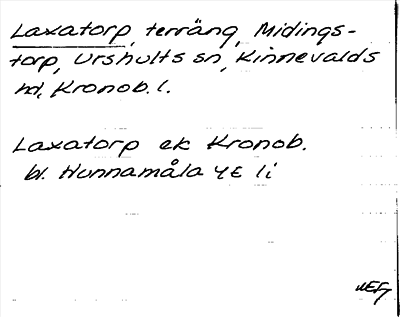 Laxatorp, terräng, Midings-
torp, Urshults sn, Kinnevalds
hd, Kronob. l.
Laxatorp ek Kronob.
bl. Hunnamåla 4E 1i